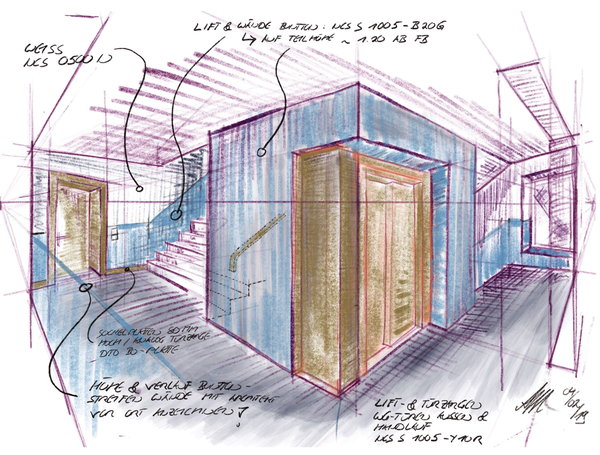 LIFT & WÄNDE BUNTTON: NCS S 1005-B20G
↳ AUF TEILHÖHE ~ 1.20 AB FB
WEISS
NCS 0500 N
SOCKELPLATTEN 80 MM
HOCH / ANALOG TÜRZARGE
DITO BO-PLATTE
HÖHE & VERLAUF BUNTTON-
STREIFEN WÄNDE MIT ARCHITEKT
VOR ORT ANZEICHNEN!
LIFT- & TÜRZARGEN
WG-TÜREN AUSSEN &
HANDLAUF
NCS S 1005-Y10R